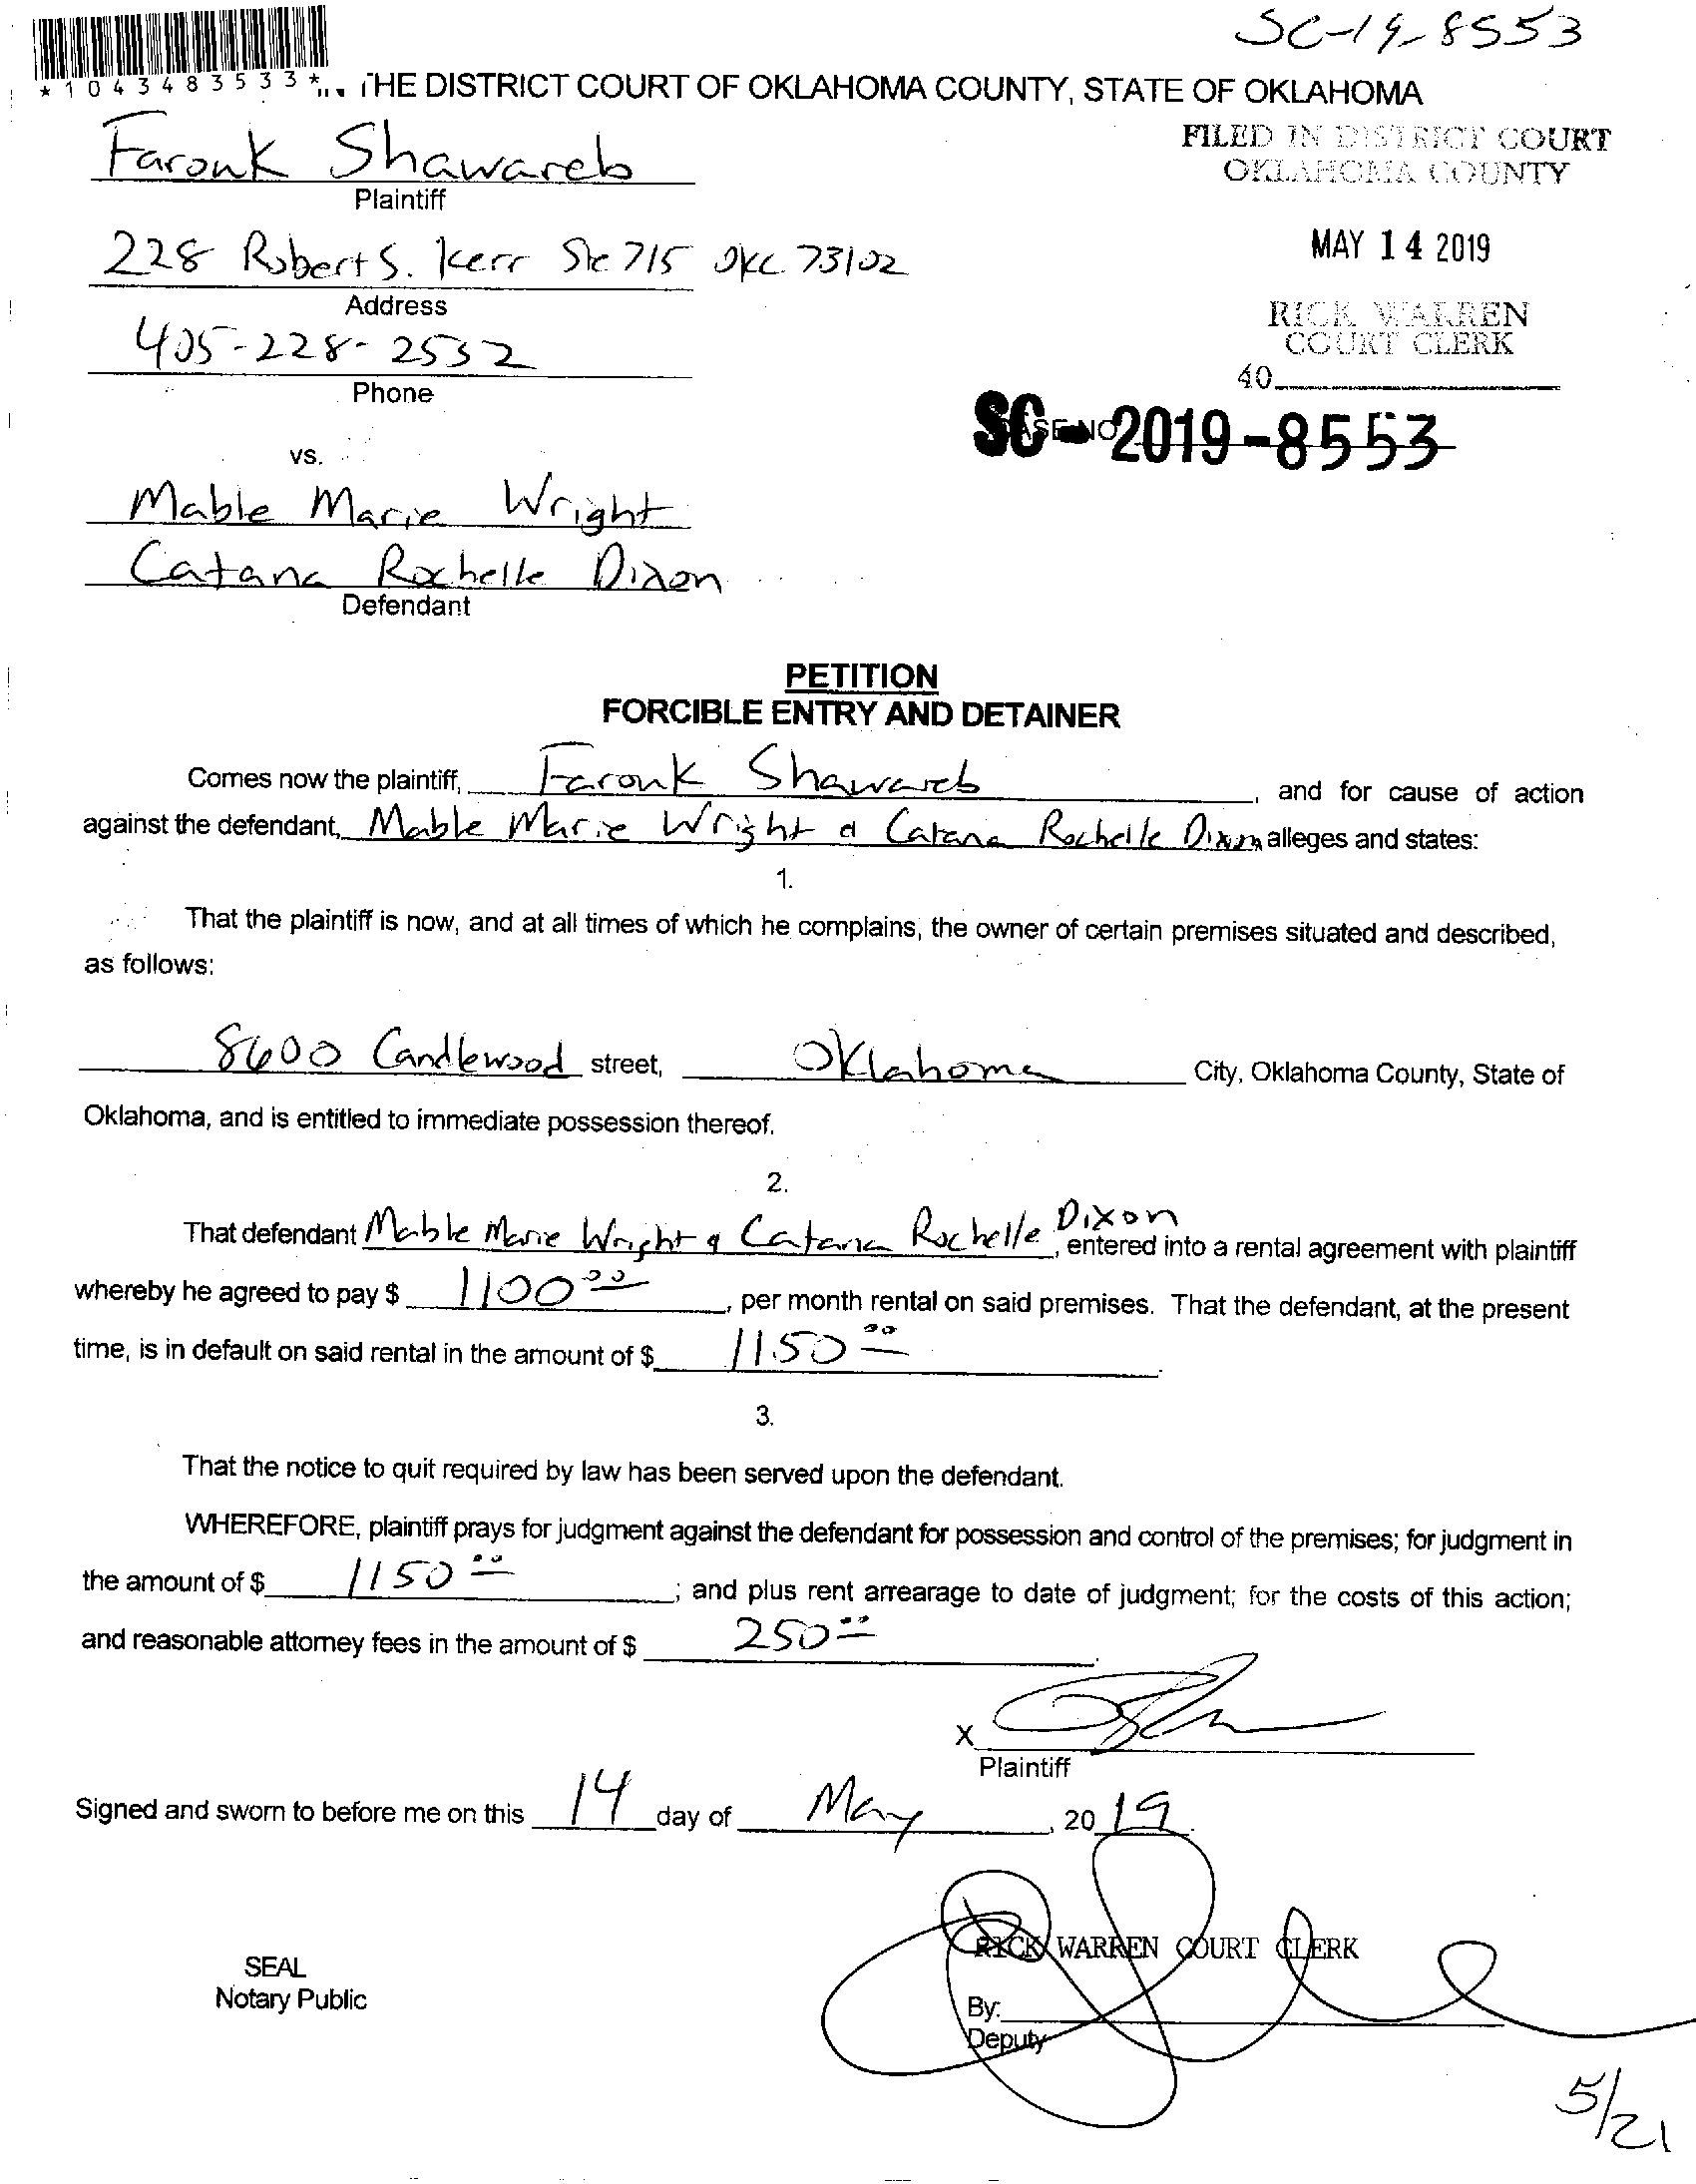 SC-19-8553
*1043483533*
THE DISTRICT COURT OF OKLAHOMA COUNTY, STATE OF OKLAHOMA
Farouk Shawareb
Plaintiff
FILED IN DISTRICT COURT
OKLAHOMA COUNTY
228 Robert S. Kerr Ste 715 OKC 73102
Address
MAY 14 2019
405-228-2532
Phone
RICK WARREN
COURT CLERK
40
SC-2019-8553
CASE NO
vs.
Mable Marie Wright
Catana Rochelle Dixon
Defendant
PETITION
FORCIBLE ENTRY AND DETAINER
Comes now the plaintiff, Farouk Shawareb, and for cause of action
against the defendant, Mable Marie Wright & Catana Rochelle Dixon alleges and states:
1.
That the plaintiff is now, and at all times of which he complains, the owner of certain premises situated and described,
as follows:
8600 Candlewood street, Oklahoma City, Oklahoma County, State of
Oklahoma, and is entitled to immediate possession thereof.
2.
That defendant Mable Marie Wright & Catana Rochelle Dixon, entered into a rental agreement with plaintiff
whereby he agreed to pay $ 1100.00, per month rental on said premises. That the defendant, at the present
time, is in default on said rental in the amount of $ 1150.00.
3.
That the notice to quit required by law has been served upon the defendant.
WHEREFORE, plaintiff prays for judgment against the defendant for possession and control of the premises; for judgment in
the amount of $ 1150.00; and plus rent arrearage to date of judgment; for the costs of this action;
and reasonable attorney fees in the amount of $ 250.00.
X
Plaintiff
Signed and sworn to before me on this 14 day of May, 2019.
RICK WARREN COURT CLERK
SEAL
Notary Public
By:
Deputy
5/21